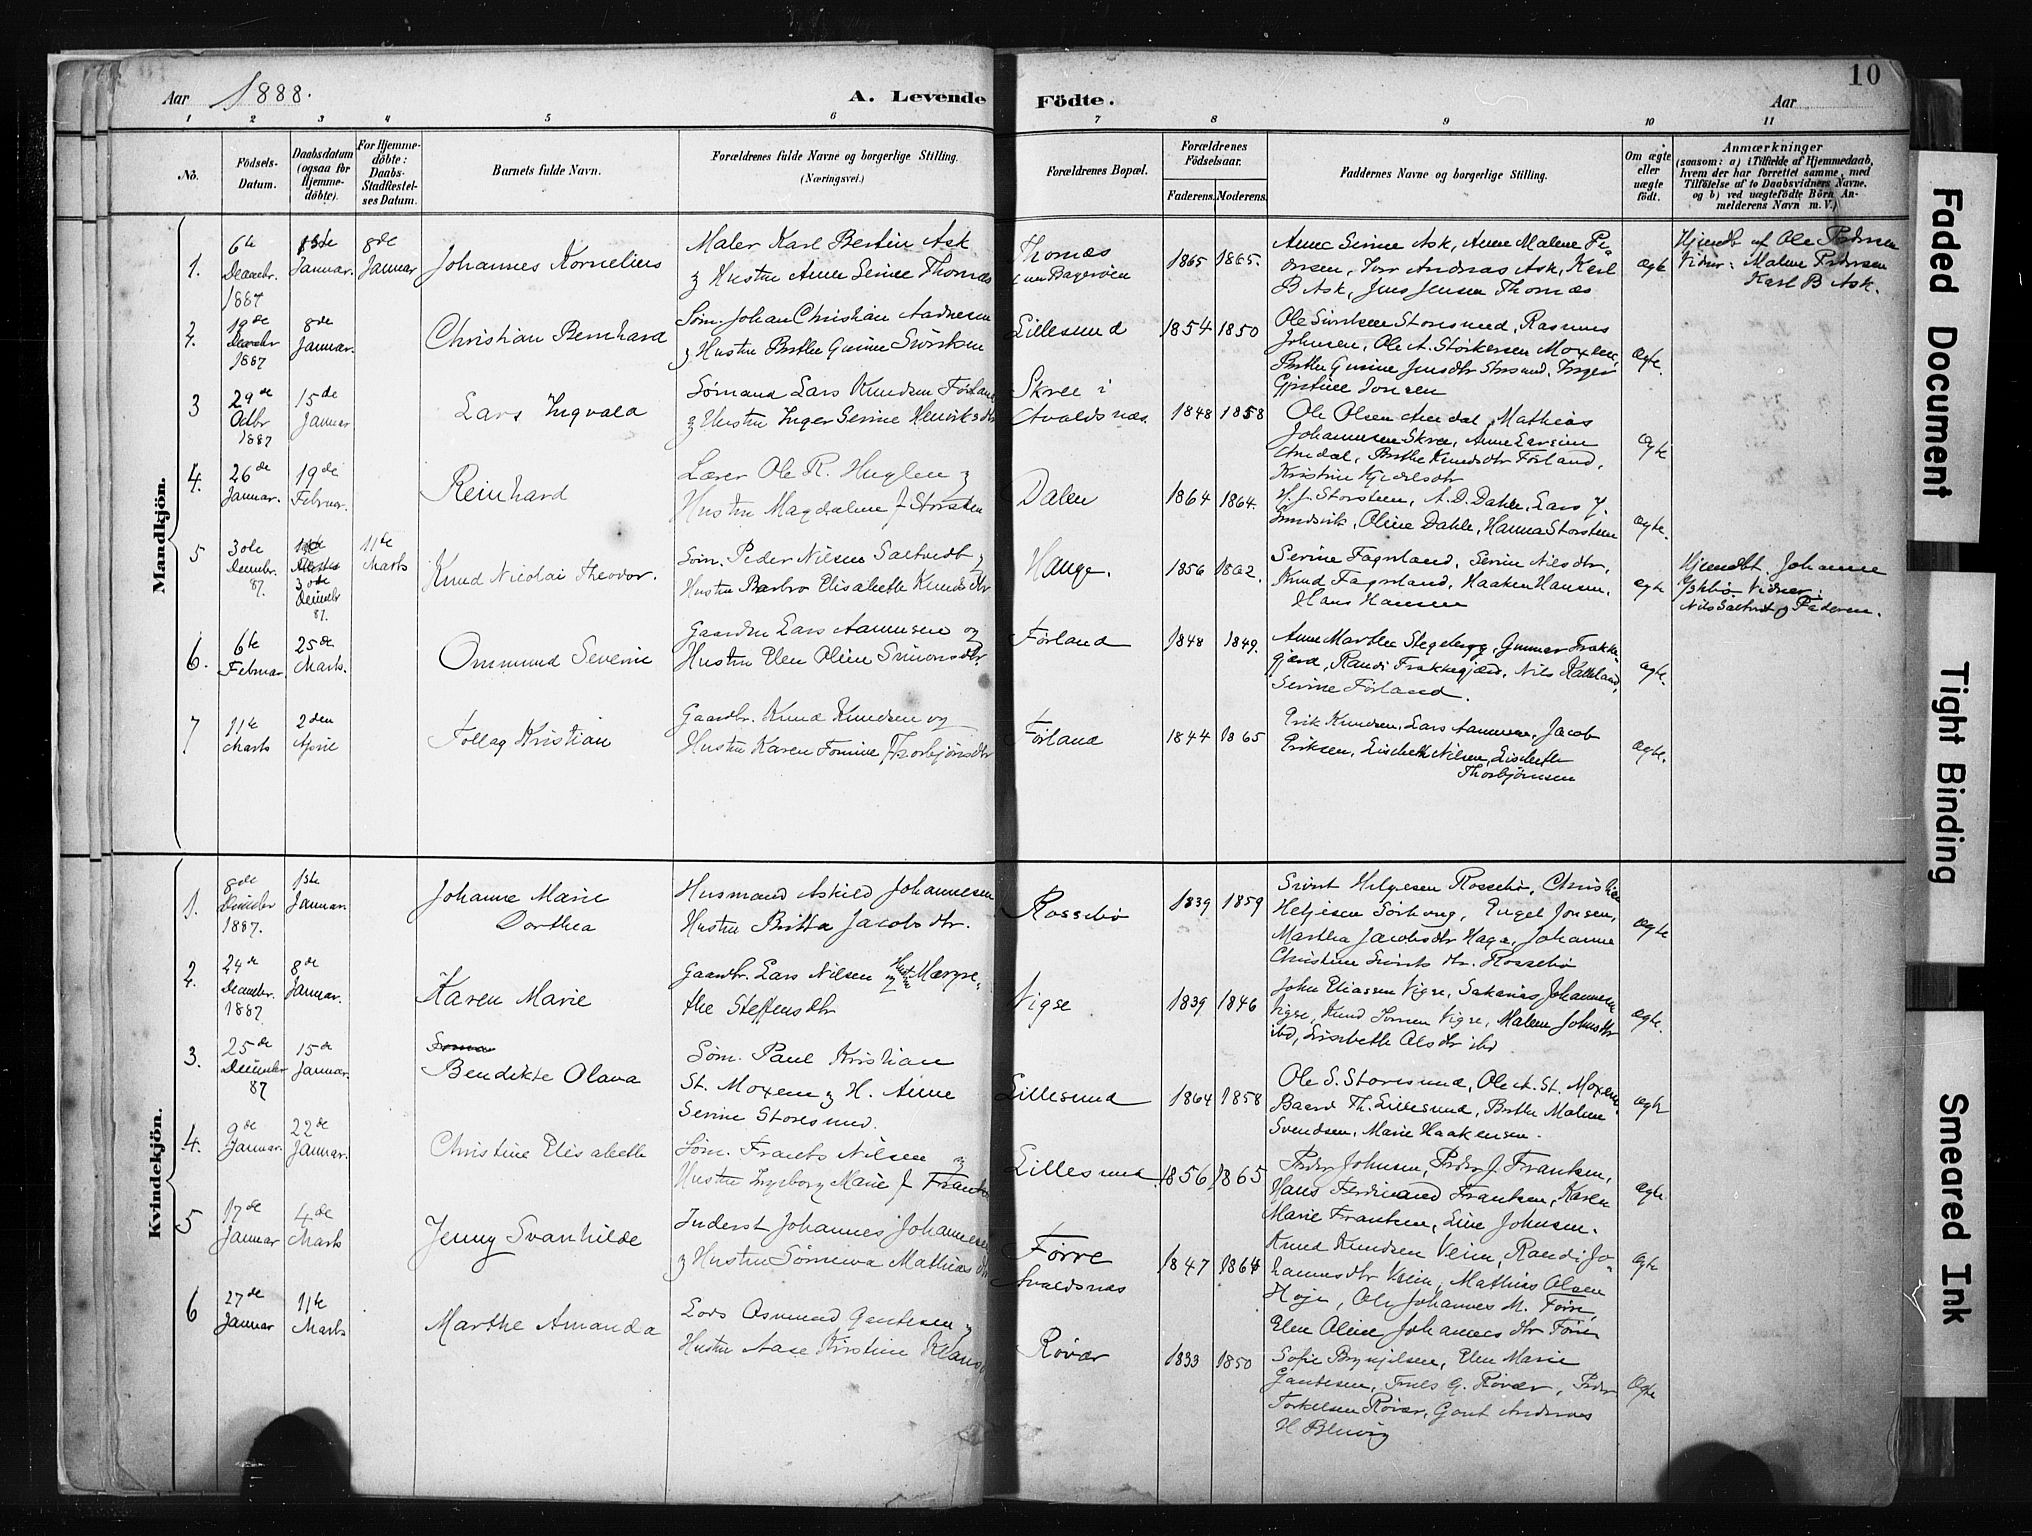 10
Aar 1888.
A. Levende Födte.
Aar
1 2 3 4 5 6 7 8 9 10 11
No.
Födsels-Datum.
Daabsdatum (ogsaa for Hjemme-döbte).
For Hjemme-döbte: Daabs-Stadfæstel-ses Datum.
Barnets fulde Navn.
Forældrenes fulde Navne og borgerlige Stilling.
(Næringsvei.)
Forældrenes Bopæl.
Forældrenes Födselsaar.
Faderens. Moderens.
Faddernes Navne og borgerlige Stilling.
Om ægte eller uægte födt.
Anmærkninger
(saasom: a) i Tilfælde af Hjemmedaab,
hvem der har forrettet samme, med
Tilföielse af to Daabsvidners Navne,
og b) ved uægtefödte Börn An-
melderens Navn m. V.)
Mandkjön.
1.
6te Decembr. 1887
Januar.
8de Januar
Johannes Kornelius
Maler Karl Bertin Ask
& Hustru Anne Serine Thomæs
Thomæs
1865 1865.
Anne Serine Ask, Anne Malene Pe-
dersen, Andreas Ask, Karl
B Ask, Jens Jensen Thomæs
Ægte
Hjemdbt af Ole Pedersen
Vidner: Malene Pedersen
Karl B Ask.
2.
19de Decbr 1887
8de Januar.
Christian Bernhard
Søm. Johan Christian Aadnesen
& Hustru Berthe Gurine Sivertsen
Lillesund
1854 1850
Ole Sivertsen Storesund, Rasmus
Johnsen, Ole A. Størkersen Moxen,
Berthe Gurine Jensdtr Storsund, Inger
Gjertine Jonsen
Ægte.
3
29de Octbr 1887
15de Januar
Lars Ingvald
Sømand Lars Knudsen Førland
& Hustru Inger Serine Henriksdtr
Skree i
Avaldsnæs.
1848 1858
Ole Olsen Aredal, Mathias
Johannesen Skree, Anne
Aredal, Berthe Knudsdtr Førland,
Kristine
Ægte
4.
26de Januar.
19de Februar.
Reinhard
Lærer Ole R. Huglen &
Hustru Magdalene J Storsten
Dalen
1864 1864.
H. J. Storsteen, A. D. Dahle, Lars J.
Oline Dahle, Hanna Storsteen
Ægte.
5
3die Decembr. 87.
3die Decembr 87.
11te Marts
Knud Nicolai Theodor.
Søm. Peder Nilsen Saltvedt &
Hustru Barbro Elisabeth Knudsdtr
Hauge.
1856 1862.
Serine Fagerland, Serine Nilsdtr,
Knud Fagerland, Haaken Hansen,
Hans Hansen
Ægte
Hjemdbt. Johanne
Vidner:
Nils Saltvedt & Faderen.
6.
6te Februar.
25de Marts.
Ommund Severin
Gaardm Lars Aanensen og
Hustru Elen Oline Simonsdtr
Førland
1848 1849.
Anne Marthe Stegeberg, Gunnar Frakke-
gjærd, Randi Frakkegjærd, Nils Kalleland,
Serine Førland.
Ægte.
7
11te Marts
2den April
Tollag Kristian
Gaardbr. Knud Knudsen og
Hustru Karen Tomine Thorbjørnsdtr
Førland
1844 1865
Erik Knudsen, Lars Aanensen, Jacob
Eriksen, Lisebeth Nilsen, Lisebeth
Thorbjørnsen
Ægte.
Kvindekjön.
1.
8de Decembr 1887.
1ste Januar.
Johanne Marie
Dorthea
Husmand Askild Johannesen
Hustru Britta Jacobsdtr.
Rossebø
1839 1859
Sivert Helgesen Rossebø, Christian
Helgesen Sørhoug, Engel Jonsen,
Martha Jacobsdtr Hage, Johanne
Christine Sivertsdtr. Rossebø
Ægte
2.
24de Decembr. 1887
8de Januar.
Karen Marie
Gaardbr. Lars Nilsen og Hustru Margre-
the Steffensdtr
Vigse
1839 1846
John Eliassen Vigse, Sakarias Johannesen
Vigse, Knud Vigse, Malene Johnsdtr
ibd, Lisebeth Olsdtr ibd
Ægte.
3.
25de Decembr 87
15de Januar.
Bendikte Olava
Søm. Paul Kristian
St. Moxen & H. Anne
Serine Storesund.
Lillesund
1864 1858
Ole S. Storesund, Ole A. St. Moxen
Baard Th. Lillesund, Berthe Malene
Svendsen, Marie Haakensen.
Ægte
4.
9de Januar.
22de Januar.
Christine Elisabeth
Søm. Frants Nilsen &
Hustru Ingeborg Marie J Frantsen
Lillesund
1856 1865
Peder Johnsen, Peder J. Frantsen,
Hans Ferdinand Frantsen, Karen
Marie Frantsen, Line Johnsen.
Ægte.
5
17de Januar
4de Marts
Jenny Svanhilde
Inderst Johannes Johannesen
& Hustru Sørine Mathiasdtr
Førre
Avaldsnæs
1847 1864
Knud Knudsen Veim, Randi Jo-
hannesdtr Veim, Mathias Olsen
Høje, Ole Johannes M. Førre,
Elen Oline Johannesdtr Førre
Ægte
6
27de Januar
11te Marts
Marthe Amanda
Lods Osmund Gautesen &
Hustru Aase Kristine Klausd
Røvær
1833 1850
Sofie Brynjelsen, Elen Marie
Gautesen, G. Røvær, Peder
Torkelsen Røvær, Gaut Andreas
H
Ægte
Faded Document
Tight Binding
Smeared Ink